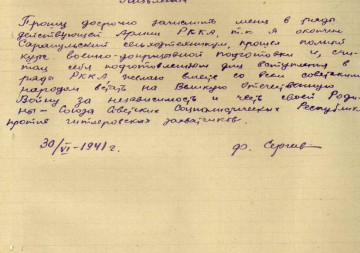 Прошу досрочно зачислить меня в ряды
действующей Армии РККА, т.к. я окончил
Сарапульский сельхозтехникум, прошел полный
курс военно-допризывной подготовки и, счи-
таю себя подготовленным для вступления в
ряды РККА желаю вместе со всем советским
народом встать на Великую отечественную
Войну за независимость и честь своей Роди-
ны - Союза Советских Социалистических Республик
против гитлеровских захватчиков.
30/VI-1941 г. Ф. Сергеев